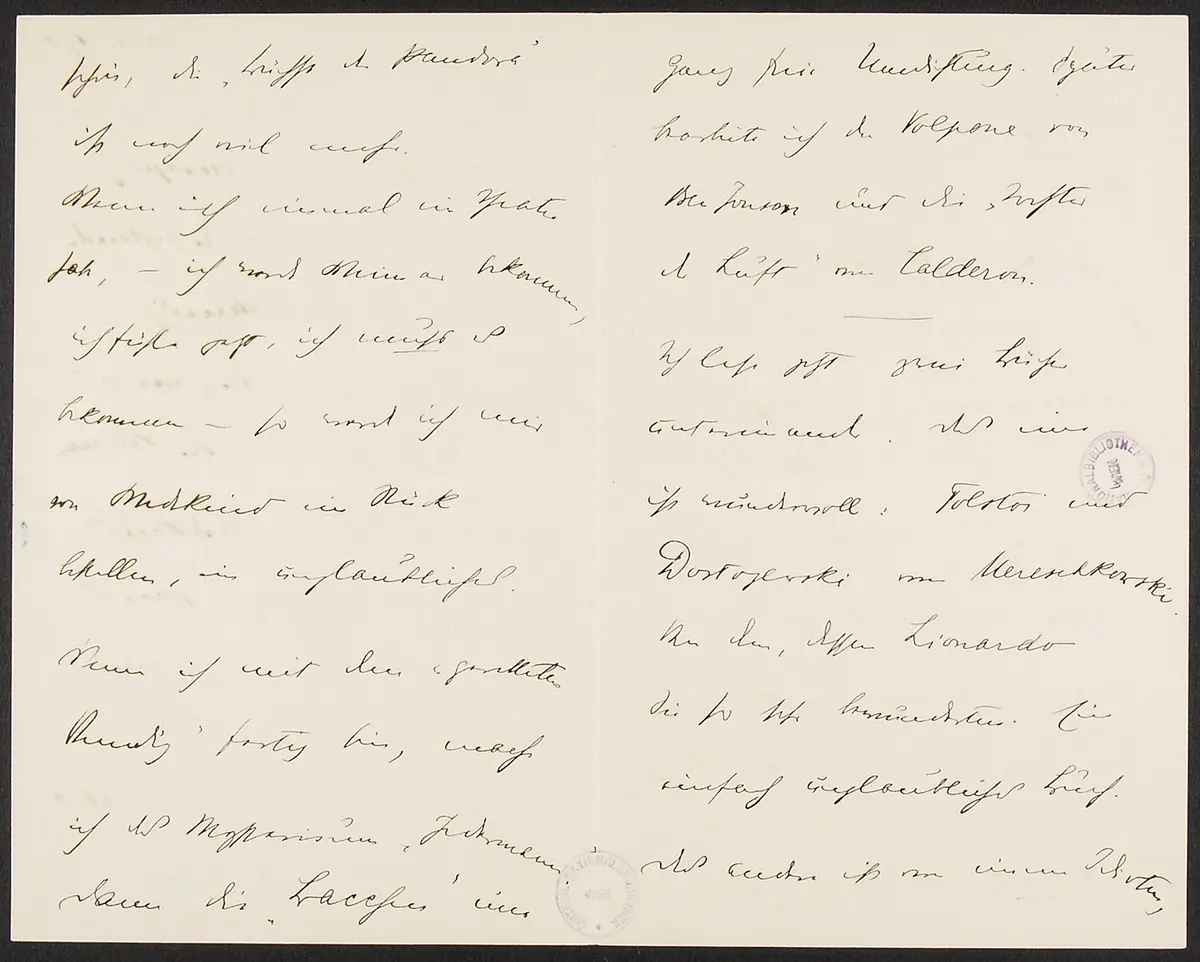 schön, die „Büchse der Pandora"
ist noch viel mehr.
Wenn ich einmal ein Theater
hab, – ich werde keines bekommen,
ich fühle jetzt, ich muß es
bekommen – so werde ich mir
von Wedekind ein Stück
bestellen, ein unglaubliches.
Wenn ich mit dem „geretteten
Venedig" fertig bin, mache
ich das Mysterium „Jedermann
dann die „Bacchen" eine
ganz freie Umdichtung. Später
bearbeite ich den Volpone von
Ben Jonson und die „Tochter
der Luft" von Calderon.
Ich lese jetzt zwei Bücher
untereinander. Das eine
ist wundervoll: Tolstoi und
Dostojewski von Mereschkowski.
Von dem, dessen Lionardo
Sie so sehr bewunderten. Ein
einfach unglaubliches Buch.
Das andere ist von einem Idioten,